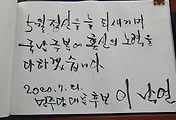 5월 정신을 늘 되새기며
국난 극복에 혼신의 노력을
다하겠습니다.
2020. 7. 21.
민주당 대표후보 이낙연